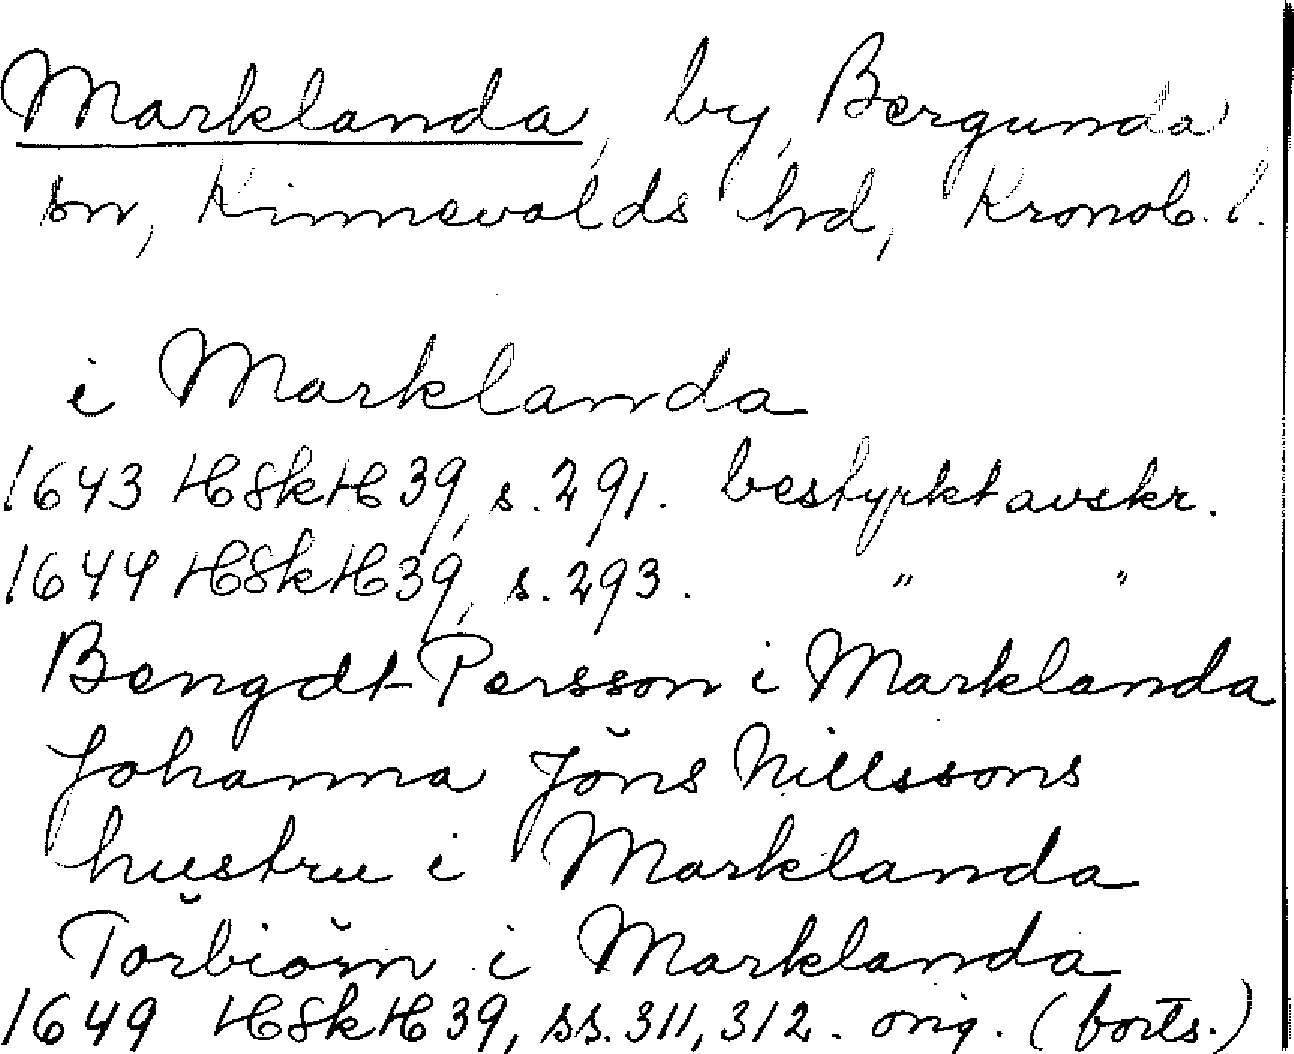 Marklanda, by, Bergunda
sn, Kinnevalds hrd, Kronob. l.
i Marklanda
1643 HSkH 39, s. 291. bestyrkt avskr.
1644 HSkH 39, s. 293. " "
Bengdt Persson i Marklanda
Johanna Jöns Nillssons
hustru i Marklanda
Törbiörn i Marklanda
1649 HSkH 39, ss. 311, 312. orig. (forts.)